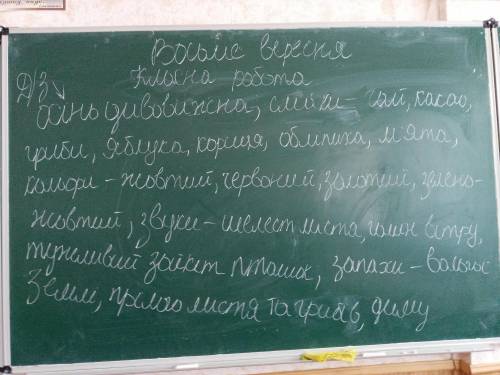 Восьме вересня
Класна робота
Д/З Осінь дивовижна, смаки – чай, какао,
гриби, яблука, кориця, обліпиха, м'ята,
кольори – жовтий, червоний, золотий, зелено-
жовтий, звуки – шелест листа, шум вітру,
тужливий пташок, запахи – вологої
Землі, прілого листя та грибів, диму